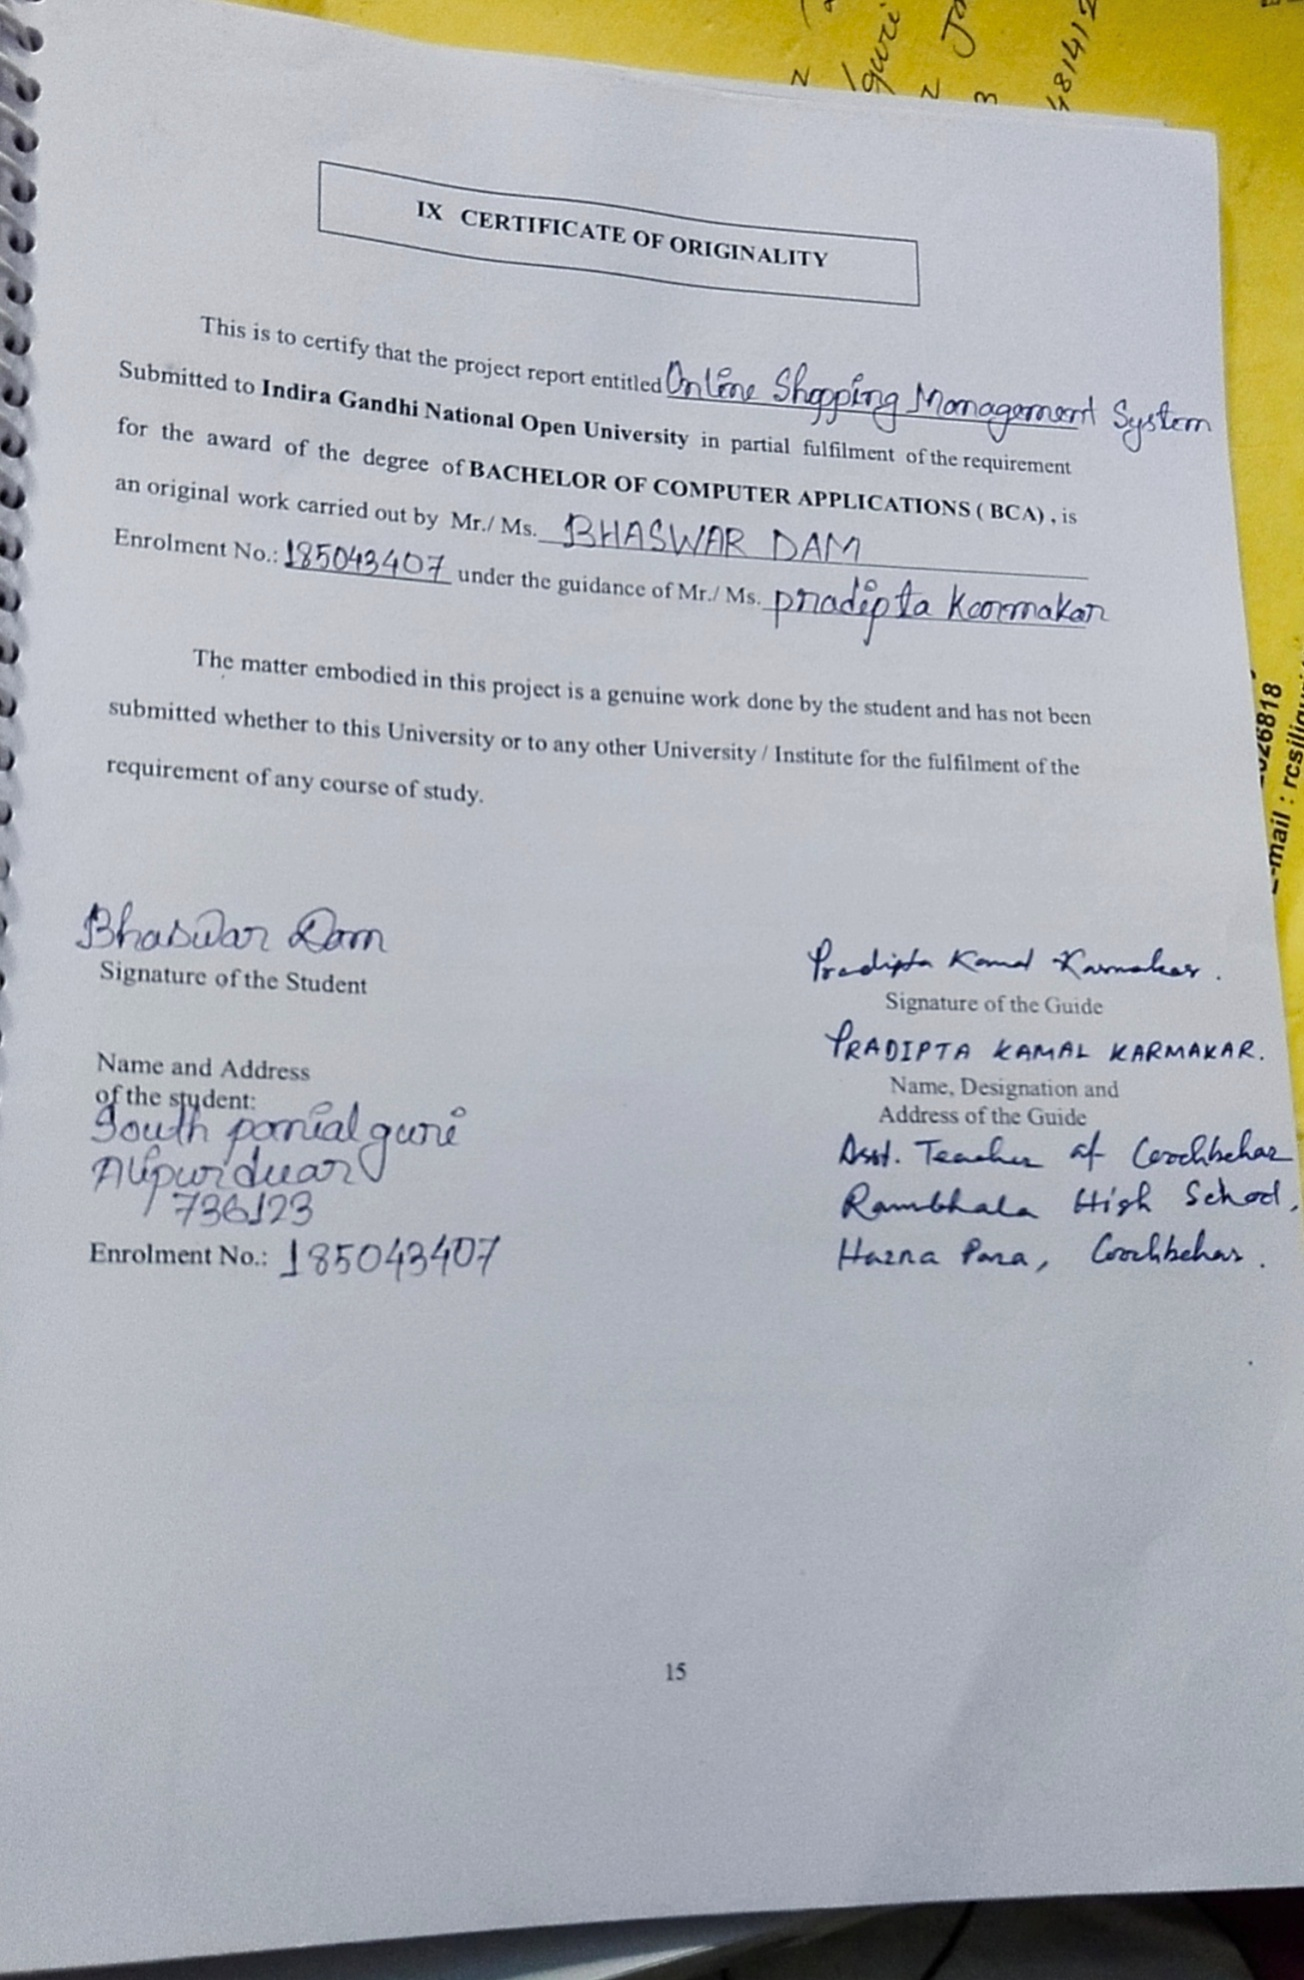 IX CERTIFICATE OF ORIGINALITY
This is to certify that the project report entitled Online Shopping Management System
Submitted to Indira Gandhi National Open University in partial fulfilment of the requirement
for the award of the degree of BACHELOR OF COMPUTER APPLICATIONS ( BCA) , is
an original work carried out by Mr./ Ms. BHASWAR DAM
Enrolment No.: 185043407 under the guidance of Mr./ Ms. pradipta Karmakar
The matter embodied in this project is a genuine work done by the student and has not been
submitted whether to this University or to any other University / Institute for the fulfilment of the
requirement of any course of study.
Bhaswar Dam
Signature of the Student
Name and Address
of the student:
South
Alipurduar
736123
Enrolment No.: 185043407
Pradipta Kamal Karmakar.
Signature of the Guide
PRADIPTA KAMAL KARMAKAR.
Name, Designation and
Address of the Guide
Asst. Teacher of Coochbehar
Rambhola High School,
Hazra Para, Coochbehar.
15
26818
mail : rcsiligur